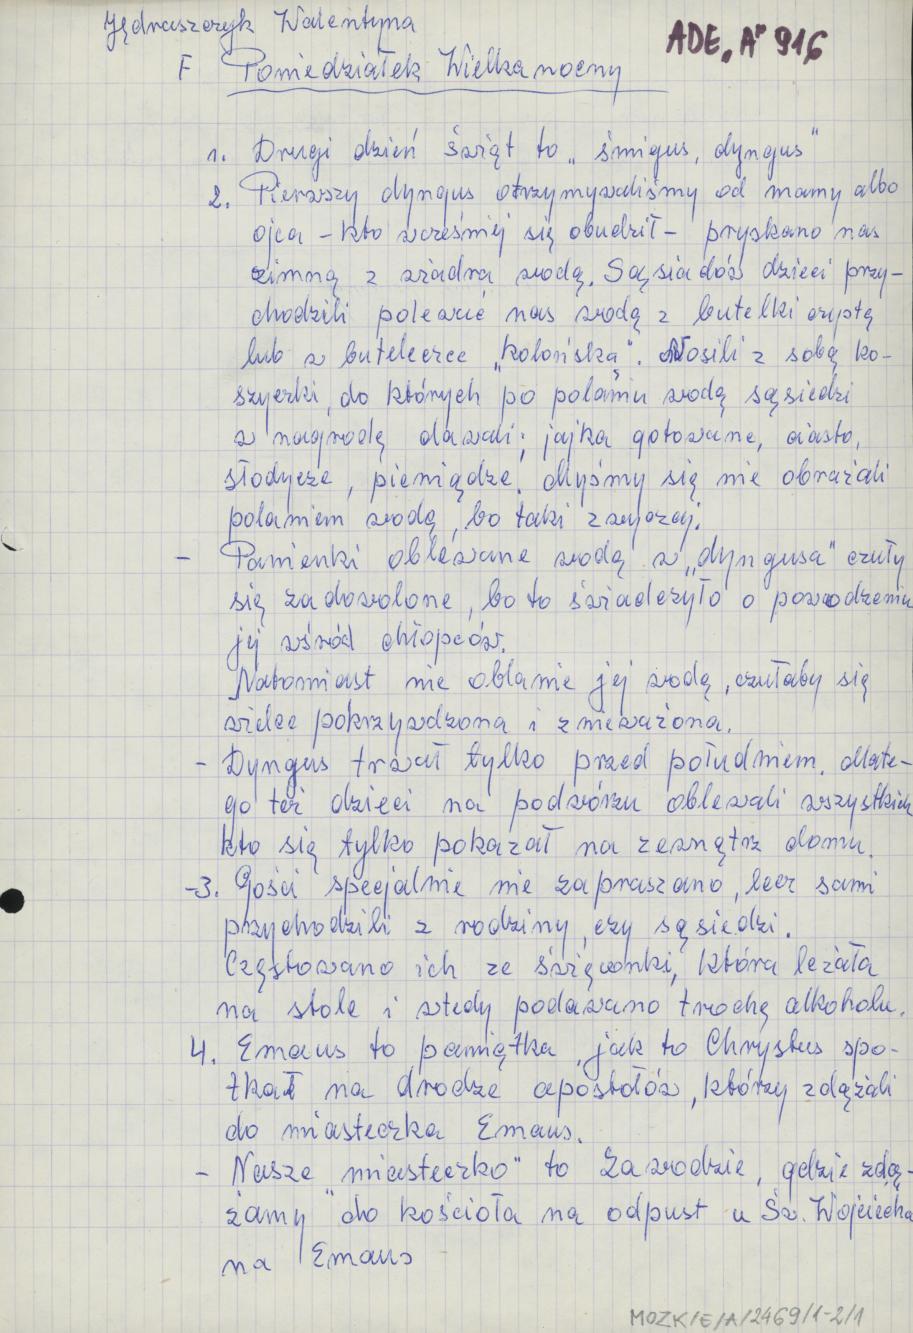 Jędraszczyk Walentyna
ADE "A" 916
F Poniedziałek Wielkanocny
1. Drugi dzień świąt to „śmigus, dyngus"
2. Pierwszy dyngus otrzymywaliśmy od mamy albo
ojca – kto wcześniej się obudził – pryskano nas
zimną z wiadra wodą. Sąsiadów dzieci przy-
chodzili polewać nas wodą z butelki
lub w buteleczce „kolońską". Nosili z sobą ko-
szyczki, do których po polaniu wodą sąsiedzi
w nagrodę dawali; jajka gotowane, ciasto,
słodycze, pieniądze. Myśmy się nie obrażali
polaniem wodą, bo taki zwyczaj.
– Panienki oblewane wodą w „dyngusa" czuły
się zadowolone, bo to świadczyło o powodzeniu
jej wśród chłopców.
Natomiast nie oblanie jej wodą, czułaby się
wielce pokrzywdzona i znieważona.
– Dyngus trwał tylko przed południem, dlate-
go też dzieci na podwórzu oblewali wszystkich
kto się tylko pokazał na zewnątrz domu.
–3. Gości specjalnie nie zapraszano, lecz sami
przychodzili z rodziny, czy sąsiedzi.
Częstowano ich ze święconki, która leżała
na stole i wtedy podawano trochę alkoholu.
4. Emaus to pamiątka, jak to Chrystus spo-
tkał na drodze apostołów, którzy zdążali
do miasteczka Emaus.
– Nasze "miasteczko" to Zawodzie, gdzie zdą-
żamy do kościoła na odpust u Św. Wojciecha
na Emaus
MOZK/E/A/2469/1-2/1